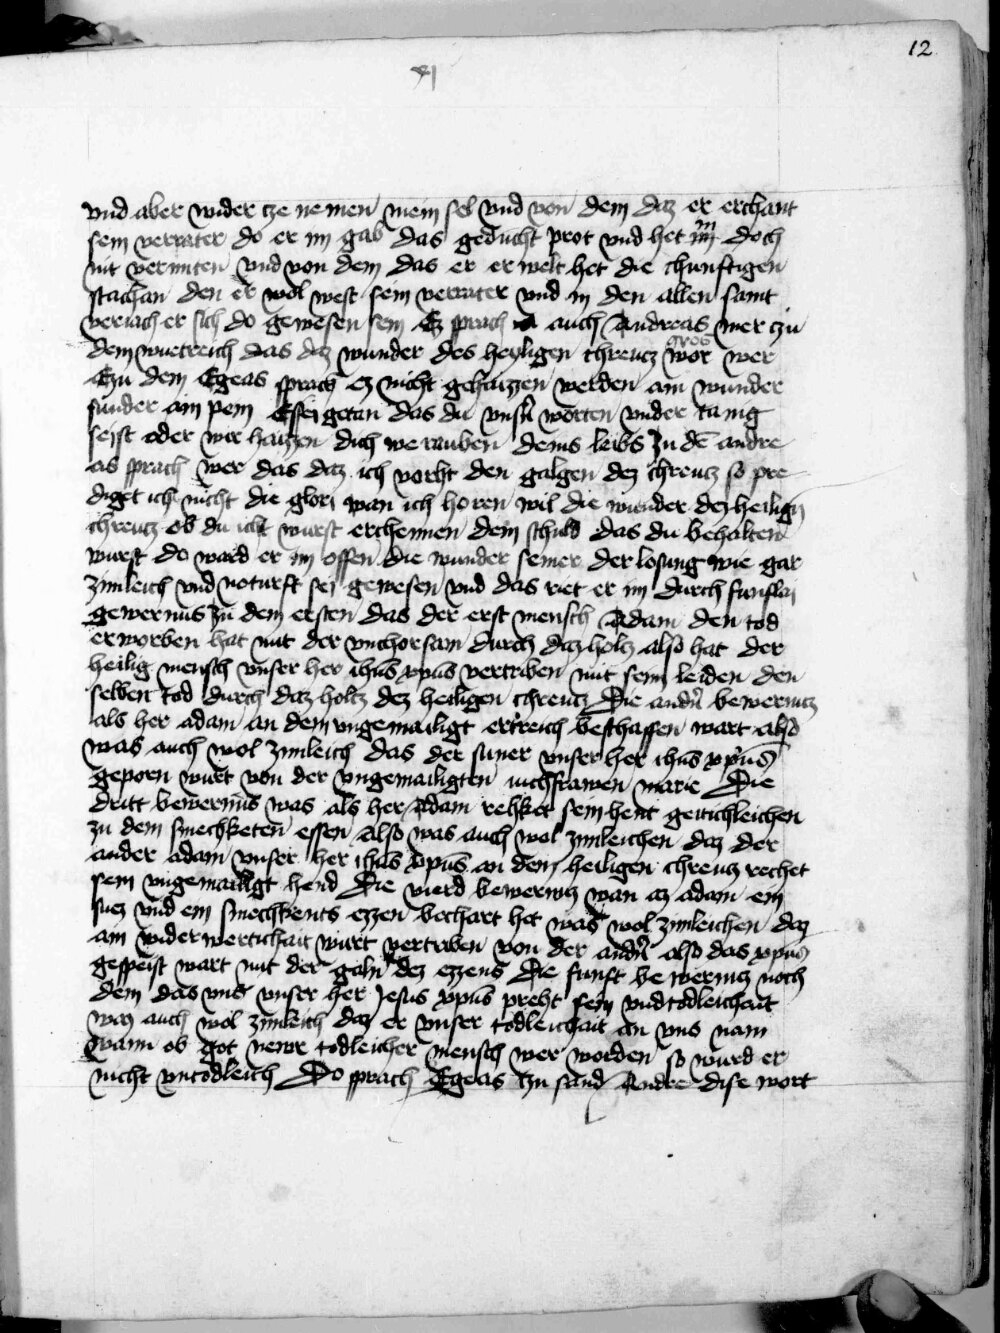 12
xj
vnd aber wider cze nemen mein sel vnd von dem daz er erchant
sein verrater do er im gab das geducht prot vnd het im doch
nit vermiten vnd von dem das er erwelt het die chunftigen
stachan den er wol west sein verrater vnd in den allen samt
veriach er sich do gewesen sein Ez sprach auch Andreas mer czu
dem wuetreich das daz wunder des heyligen chreucz gros wor wer
Czu dem Egeas sprach ez nicht gehaizzen werden ain wunder
sunder ain pein Essei getan das du vnsern worten vnder tanig
seist oder wir haizzen dich we rauben deins leibs zu dē andre
as sprach wer das daz ich vorht den galgen dez chreucz so pre
diget ich nicht die glori wan ich horen wil die wunder dez heilign
chreucz ob du icht wurst erchennen dem schuld das du behalten
wurst do ward er im offen die wunder seiner der losung wie gar
zimleich vnd noturft sei gewesen vnd das riet er im durch funflai
gewernus zu dem ersten das der erst mensch Adam den tod
erworben hat mit der vnchorsam durch daz holz also hat der
heilig mensch vnser her ihus xpus vertriben mit seim leiden den
selben tod durch daz holtz dez heiligen chreucz Die andn̄ bewernucz
als her adam an dem vngemailigt ertreich beschaffen wart also
was auch wol zimleich das der suner vnser her ihus xpus
geporn wurt von der vngemailigten iuchfrawen marie Die
dritt bewernus was als her Adam rekket sein hent geitichleichen
zu dem smechketen essen Also was auch wol zimleichen daz der
ander adam vnser her ihus xpus an dem heiligen chreucz rechet
sein vngemailigt hend Die vierd bewernucz wan az adam ein
suez vnd ein smechkents ezzen bechart het was wol zimleichen daz
ain widerwertichait wurt vertriben von der andn̄ also das xpus
gespeist wart mit der galn dez ezzens Die funft bewernucz noch
dem das vns vnser her Jesus xpus preht sein vndtodleichait
waz auch wol zimleich daz er vnser todleichait an vns nam
wann ob got newr todleicher mensch wer worden so wurd er
nicht vntodleich Do sprach Egeas czu sand Andre dise wort